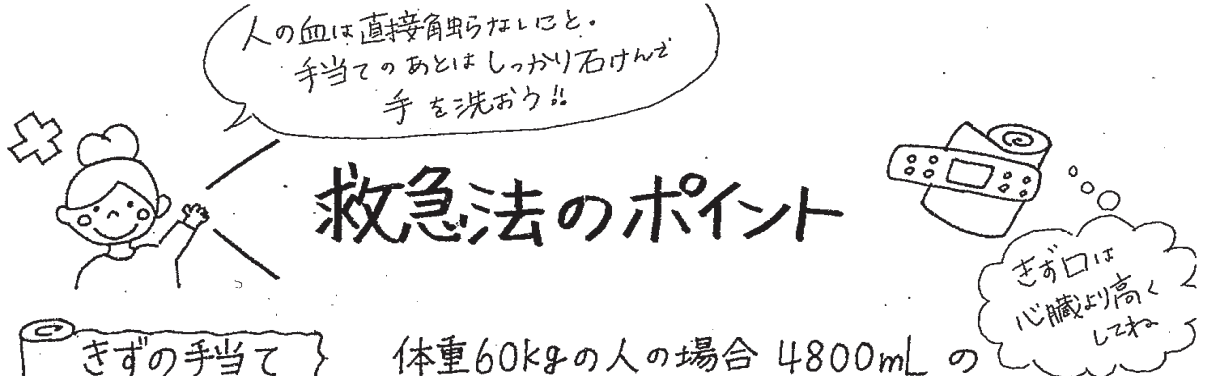 人の血は直接触らないこと。
手当てのあとはしっかり石けんで
手を洗おう!!
救急法のポイント
きず口は
心臓より高く
してね
きずの手当て
体重60kgの人の場合 4800mL の